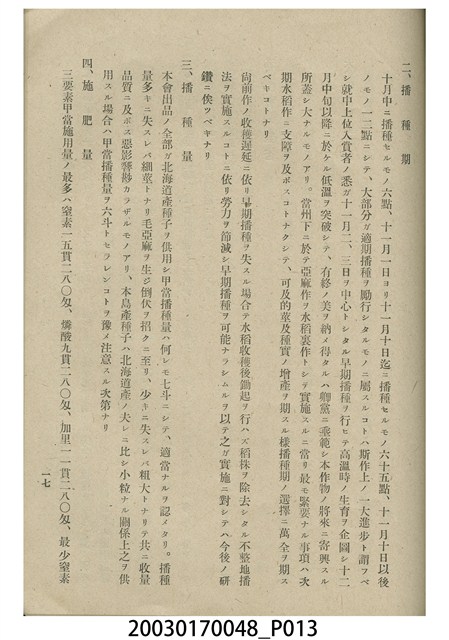 二、播種期
十月中ニ播種セルモノ六點、十一月一日ヨリ十一月十日迄ニ播種セルモノ六十五點、十一月十日以後
ノモノ一二點ニシテ、大部分ガ適期播種ヲ勵行シタルモノニ屬スルコトハ斯作上ノ一大進步ト謂フベ
シ就中上位入賞者ノ悉ガ十一月二、三日ヲ中心トシタル早期播種ヲ行ヒテ高溫時ノ生育ヲ企圖シ十二
月中旬以降ニ於ケル低溫ヲ突破シテ、有終ノ美ヲ納メ得タルハ鄕黨ニ垂範シ本作物ノ將來ニ寄興スル
所蓋シ大ナルモノアリ。當州下ニ於テ亞麻作ヲ水稻裏作トシテ實施スルニ當リ最モ緊要ナル事項ハ次
期水稻作ニ支障ヲ及ボスコトナクシテ、可及的莖及種實ノ增產ヲ期スル樣播種期ノ選擇ニ萬全ヲ期ス
ベキコトナリ
尙前作ノ收穫遲延ニ依リ早期播種ヲ失スル場合テ水稻收穫後鋤起ヲ行ハズ稻株ヲ除去シタル不整地播
法ヲ實施スルコトニ依リ勞力ヲ節減シ早期播種ヲ可能ナラシムルヲ以テ之ガ實施ニ對シテハ今後ノ研
鑽ニ俟ツベキナリ
三、播種量
本會出品ノ全部ガ北海道產種子ヲ供用シ甲當播種量ハ何レモ七斗ニシテ、適當ナルヲ認メタリ。播種
量多キニ失スレバ細莖トナリ毛亞麻ヲ生ジ倒伏ヲ招クニ至リ、少キニ失スレバ粗大トナリテ共ニ收量
品質ニ及ボス惡影響尠カラザルモノアリ、本島產種子ハ北海道產ノ夫レニ比シ小粒ナル關係上之ヲ供
用スル場合ハ甲當播種量ヲ六斗トセラレンコトヲ豫メ注意スル次第ナリ
四、施肥量
三要素甲當施用量ノ最多ハ窒素一五貫二八〇匁、燐酸九貫二八〇匁、加里一一貫二八〇匁、最少窒素
一七
20030170048_P013